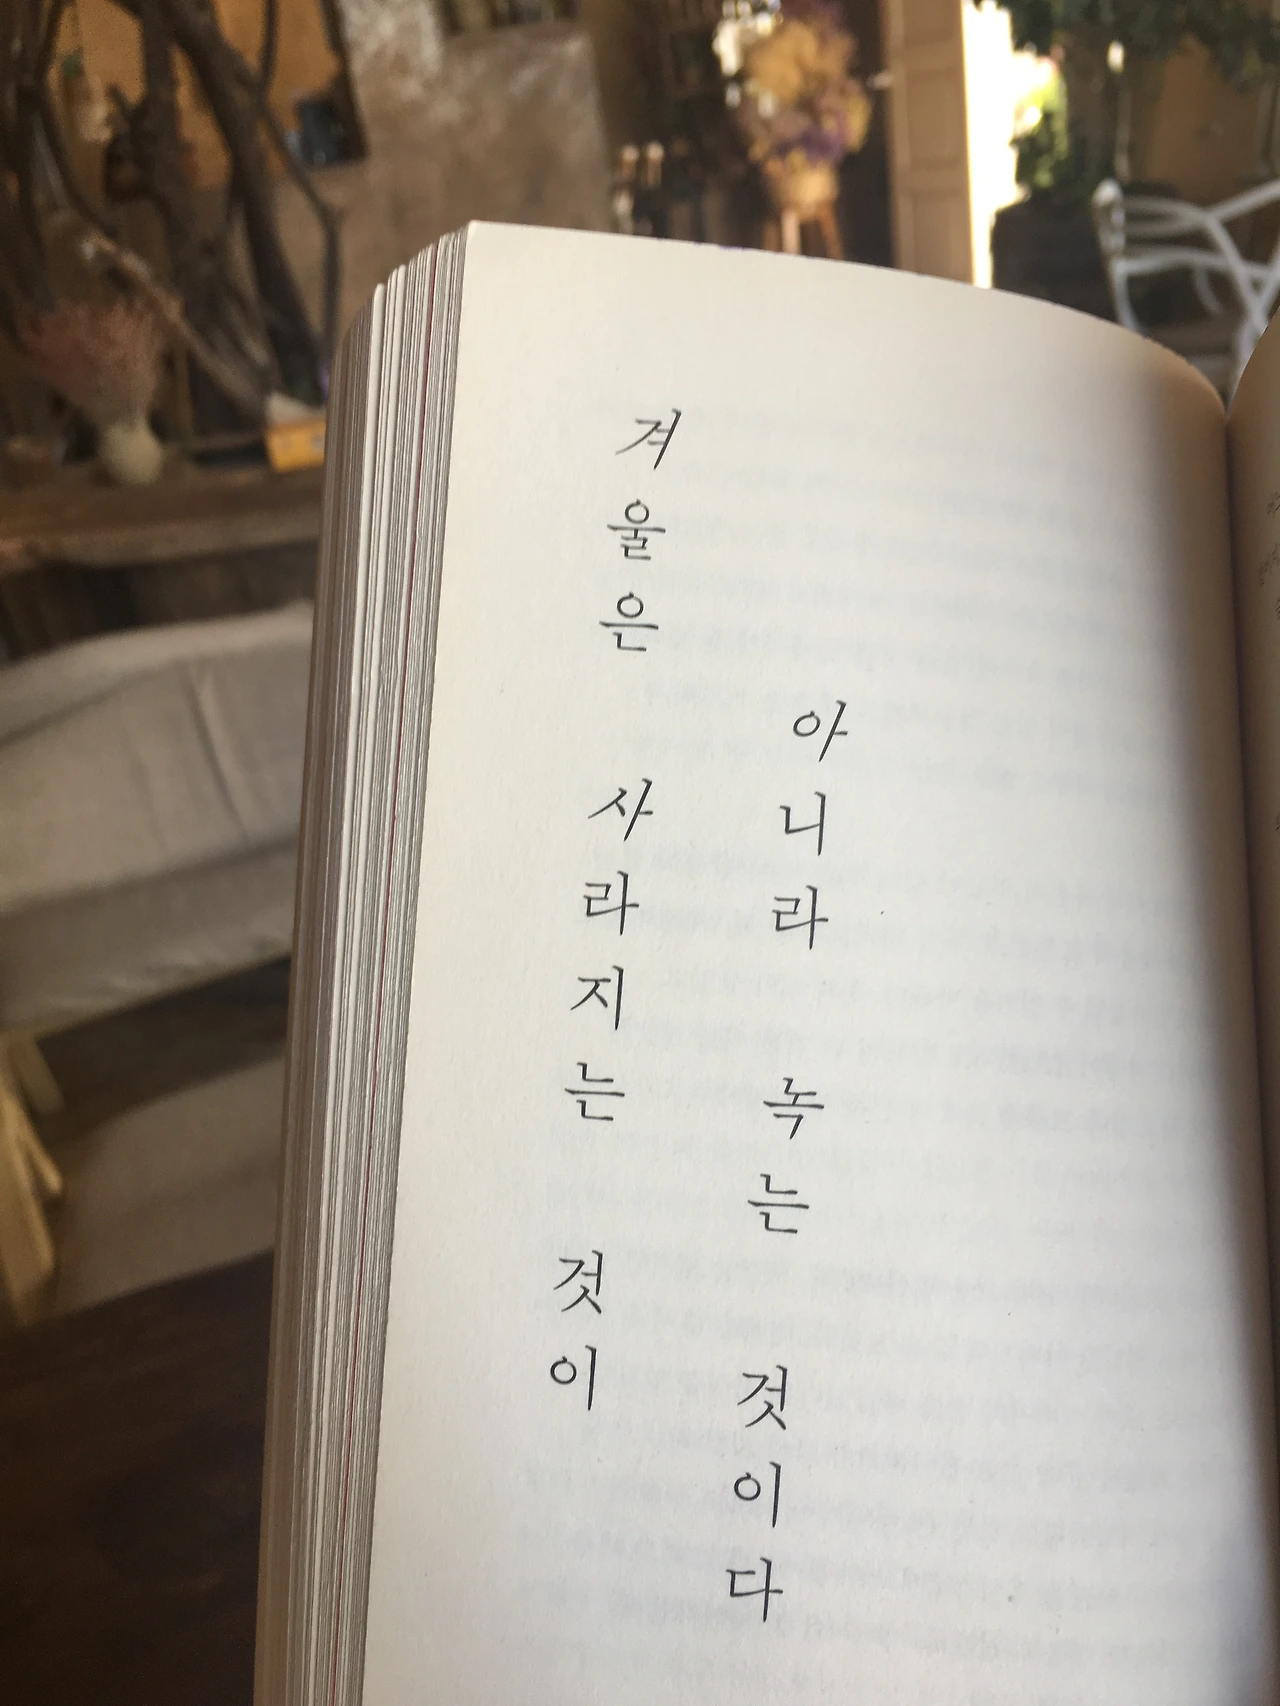 겨울은 사라지는 것이
아니라 녹는 것이다